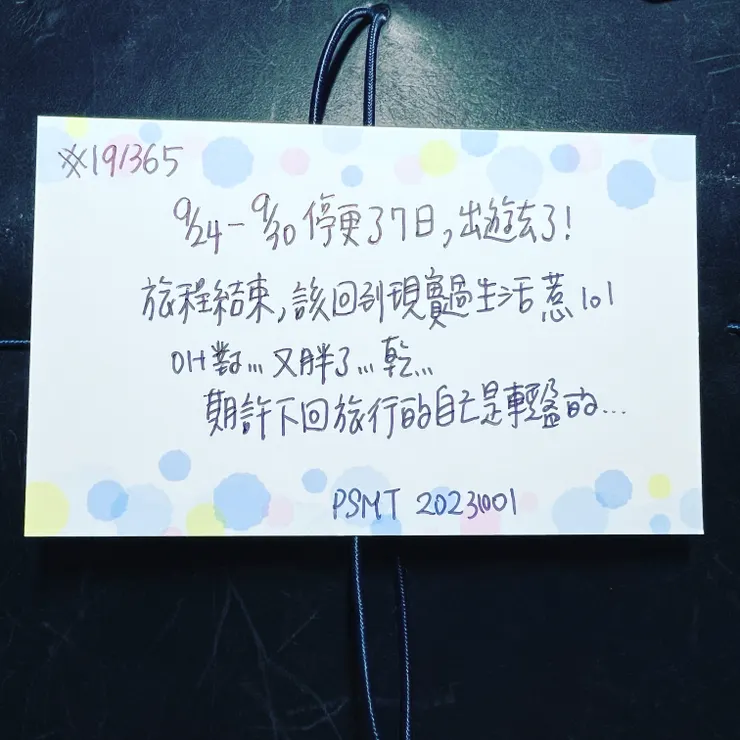 ※191/365
9/24-9/30停更了7日,出遊去了!
旅程結束,該回到現實過生活惹lol
OH對...又胖了...乾...
期許下回旅行的自己是輕盈的...
PSMT 20231001